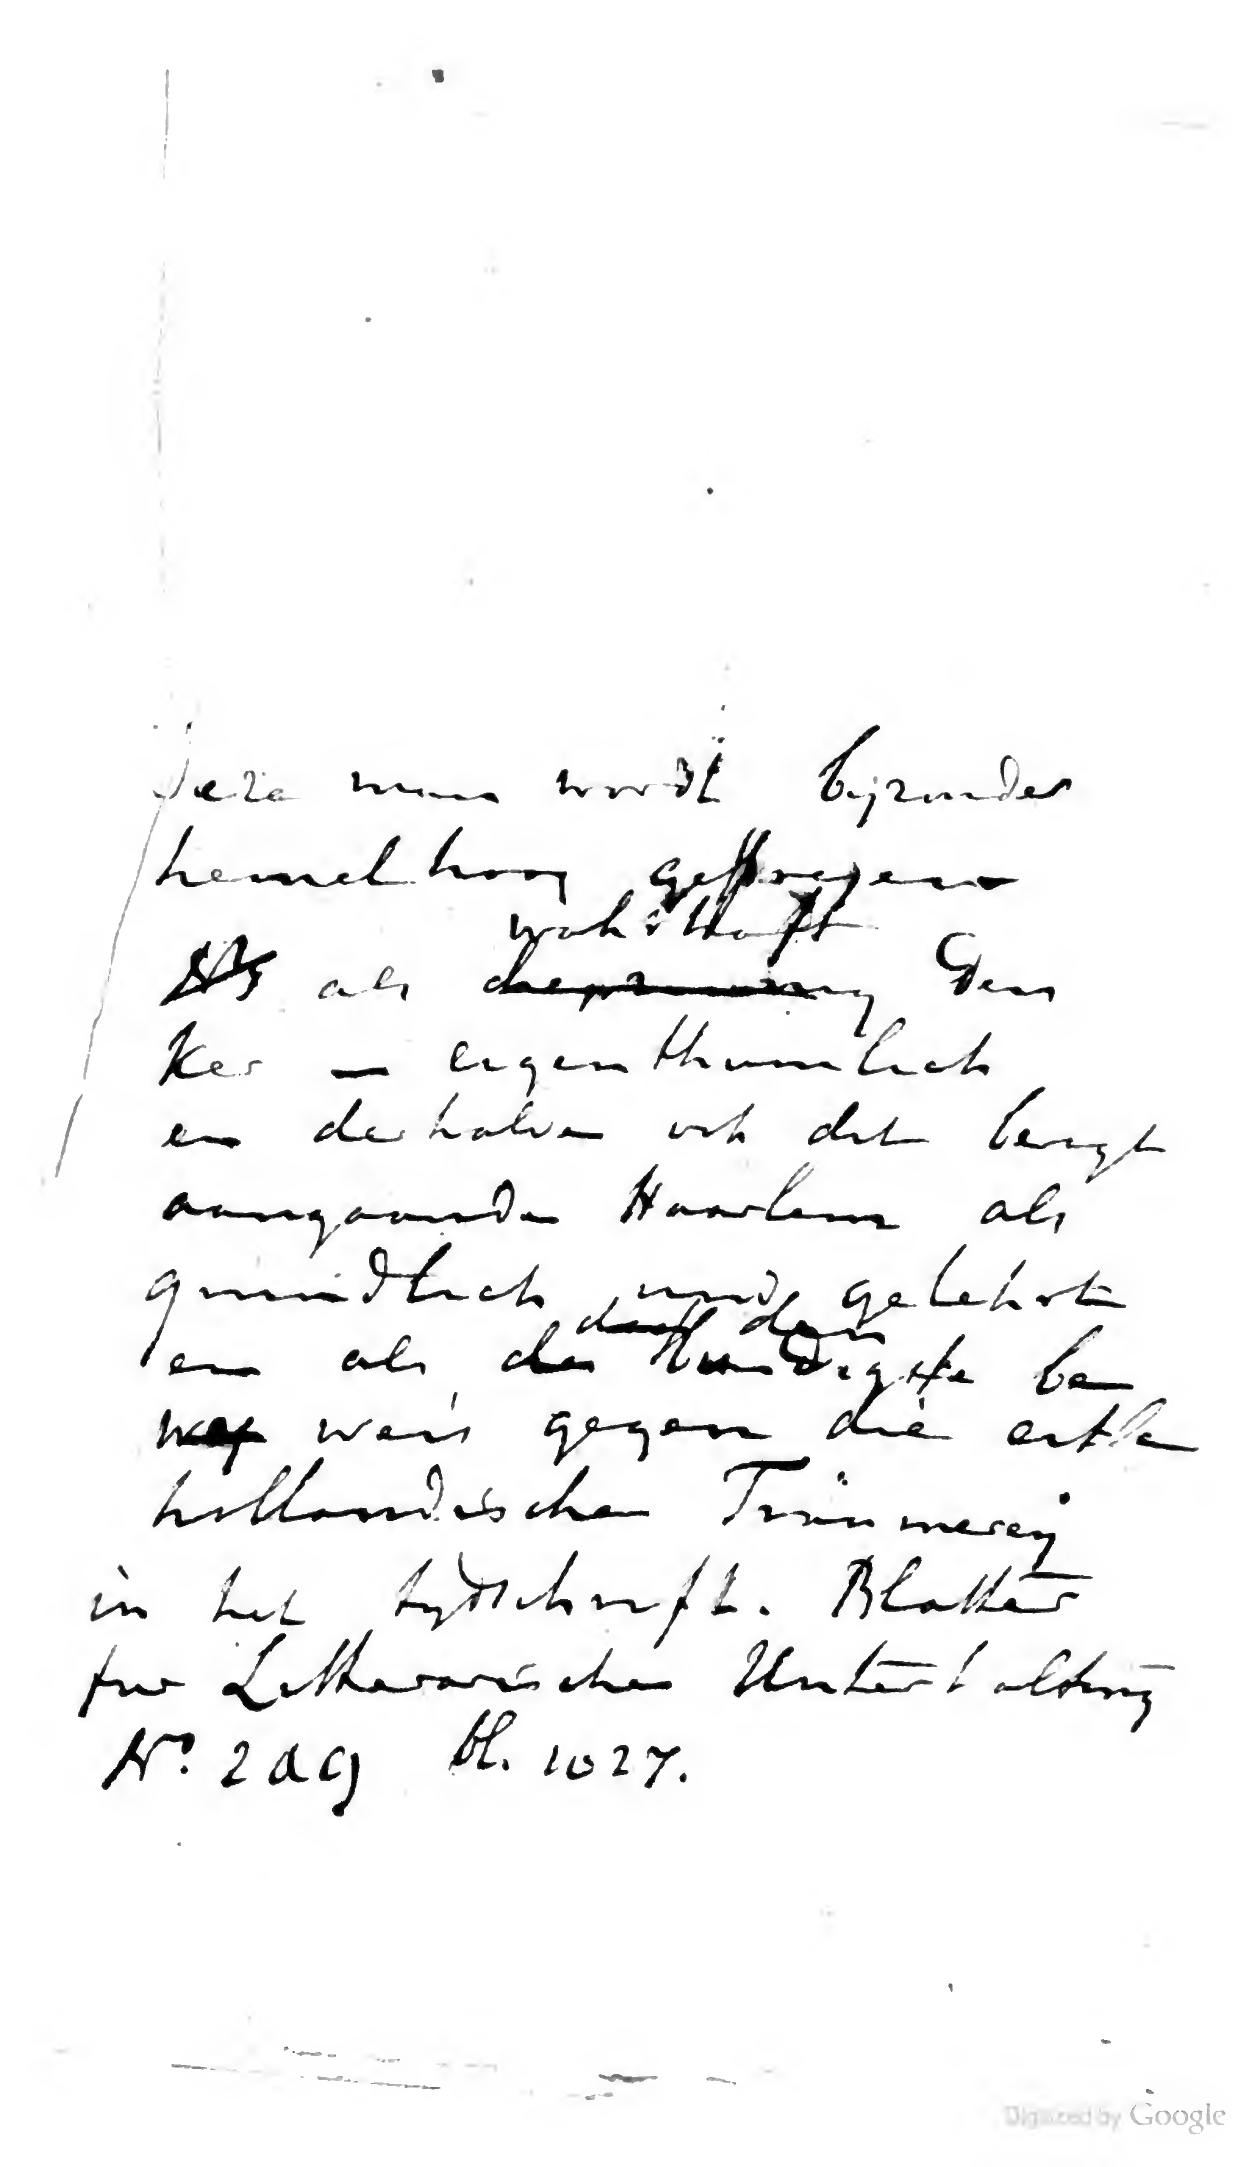 deze man wordt bijzonder
hemelhoog geprezen
wahrhaft
als Den
Ker — eigenthumlich
en derhalve ook dit berigt
aangaande Haarlem als
grundlich und gelehrt
en als der bundigste be
weis gegen die eitle
hollandische Träumerey
in het tydschrift. Blatter
fur Litterarische Unterhaltung
N°. 249 bl. 1027.
Digitized by Google